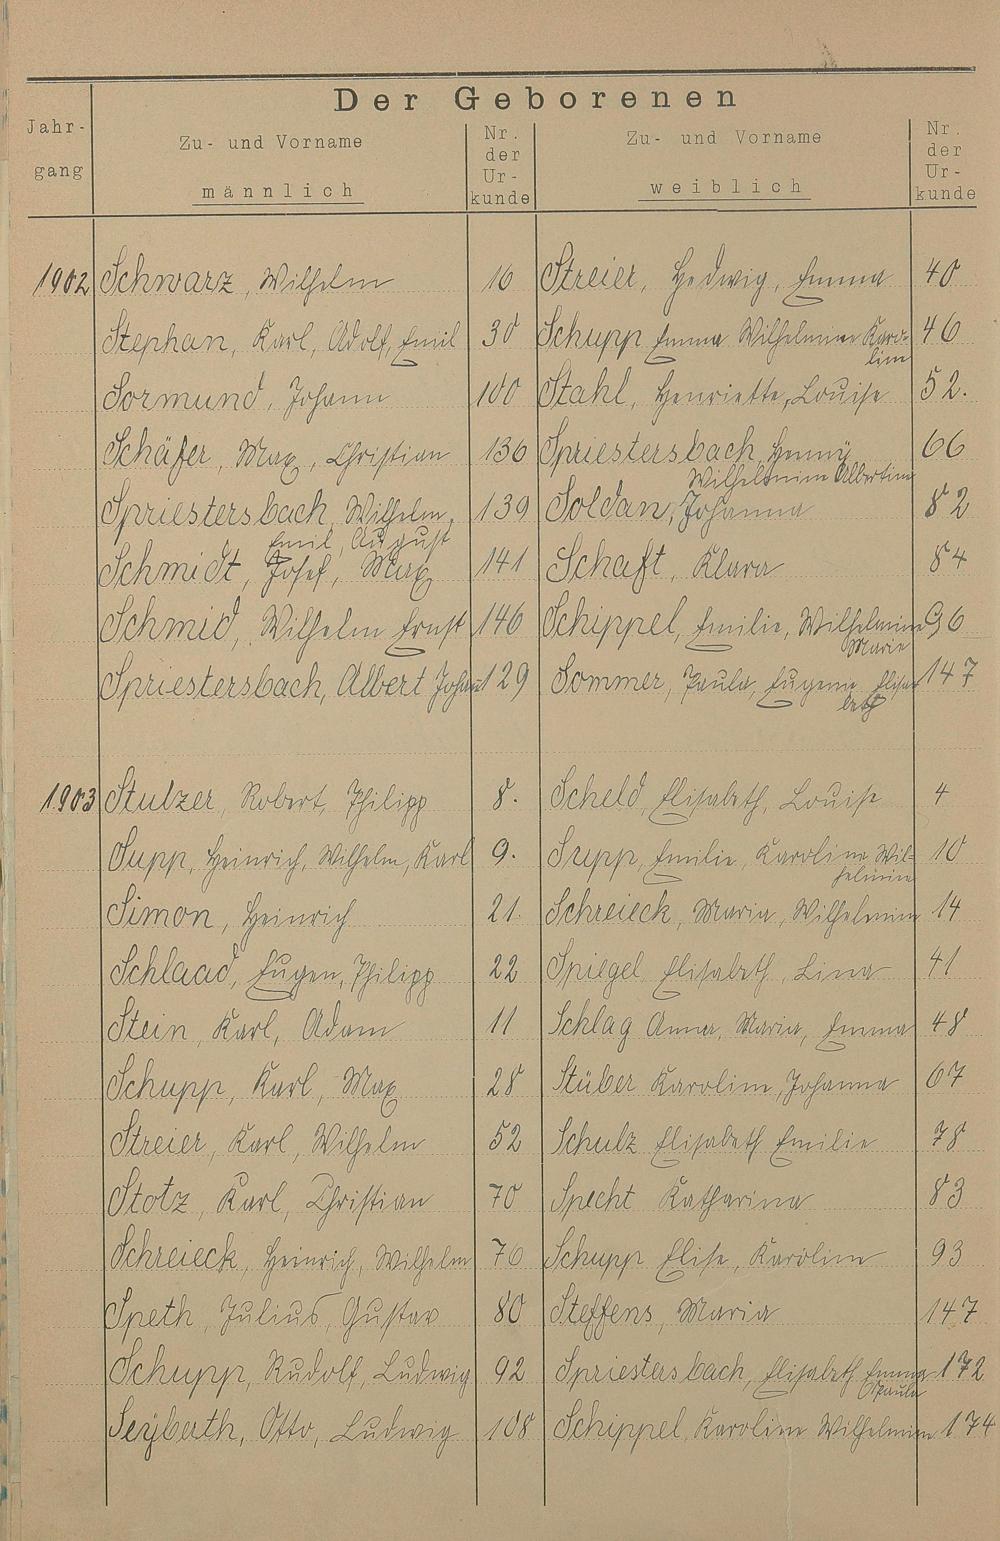 Der Geborenen
Jahr-
gang
Zu- und Vorname
männlich
Nr.
der
Ur-
kunde
Zu- und Vorname
weiblich
Nr.
der
Ur-
kunde
1902 Schwarz, Wilhelm 16 Streier, Hedwig, Emma 40
Stephan, Karl, Adolf, Emil 30 Schupp Emma Wilhelmine Karo-
line 46
Sormund, Johann 100 Stahl, Henriette, Louise 52.
Schäfer, Max, Christian 136 Spriestersbach, Henny 66
Wilhelmine Albertine
Spriestersbach, Wilhelm, 139 Soldan, Johanna 82
Emil, August
Schmidt, Josef, Max 141 Schaft, Klara 84
Schmid, Wilhelm Ernst 146 Schippel, Emilie, Wilhelmine 96
Marie
Spriestersbach, Albert Johann 129 Sommer, Paula, Eugenie Elisa- 147
beth
1903 Stulzer, Robert, Philipp 8. Scheld, Elisabeth, Louise 4
Supp, Heinrich, Wilhelm, Karl 9. Supp, Emilie, Karoline Wil- 10
helmine
Simon, Heinrich 21. Schreieck, Maria, Wilhelmine 14
Schlaad, Eugen, Philipp 22 Spiegel Elisabeth, Lina 41
Stein, Karl, Adam 11 Schlag Anna, Maria, Emma 48
Schupp, Karl, Max 28 Stüber Karoline, Johanna 67
Streier, Karl, Wilhelm 52 Schulz Elisabeth Emilie 78
Stotz, Karl, Christian 70 Specht Katharina 83
Schreieck, Heinrich, Wilhelm 76 Schupp Elise, Karoline 93
Speth, Julius, Gustav 80 Steffens, Maria 147
Schupp, Rudolf, Ludwig 92 Spriestersbach, Elisabeth Emma 172
Paula
Seyberth, Otto, Ludwig 108 Schippel, Karoline Wilhelmine 174